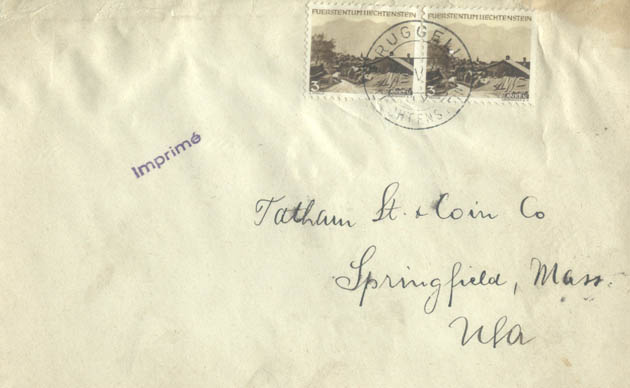 FUERSTENTUM LIECHTENSTEIN FUERSTENTUM LIECHTENSTEIN
RUGGELL
V
3 3
LIECHTENSTEIN
Imprimé
Tatham St. & Coin Co
Springfield, Mass.
USA